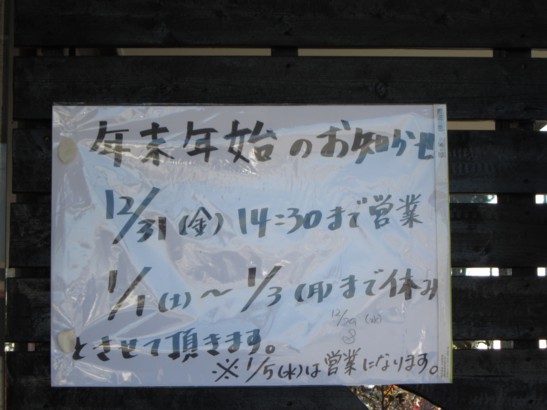 年末年始のお知らせ
12/31(金)14:30まで営業
1/1(土)〜1/3(月)まで休み
とさせて頂きます。
※1/5(水)は営業になります。